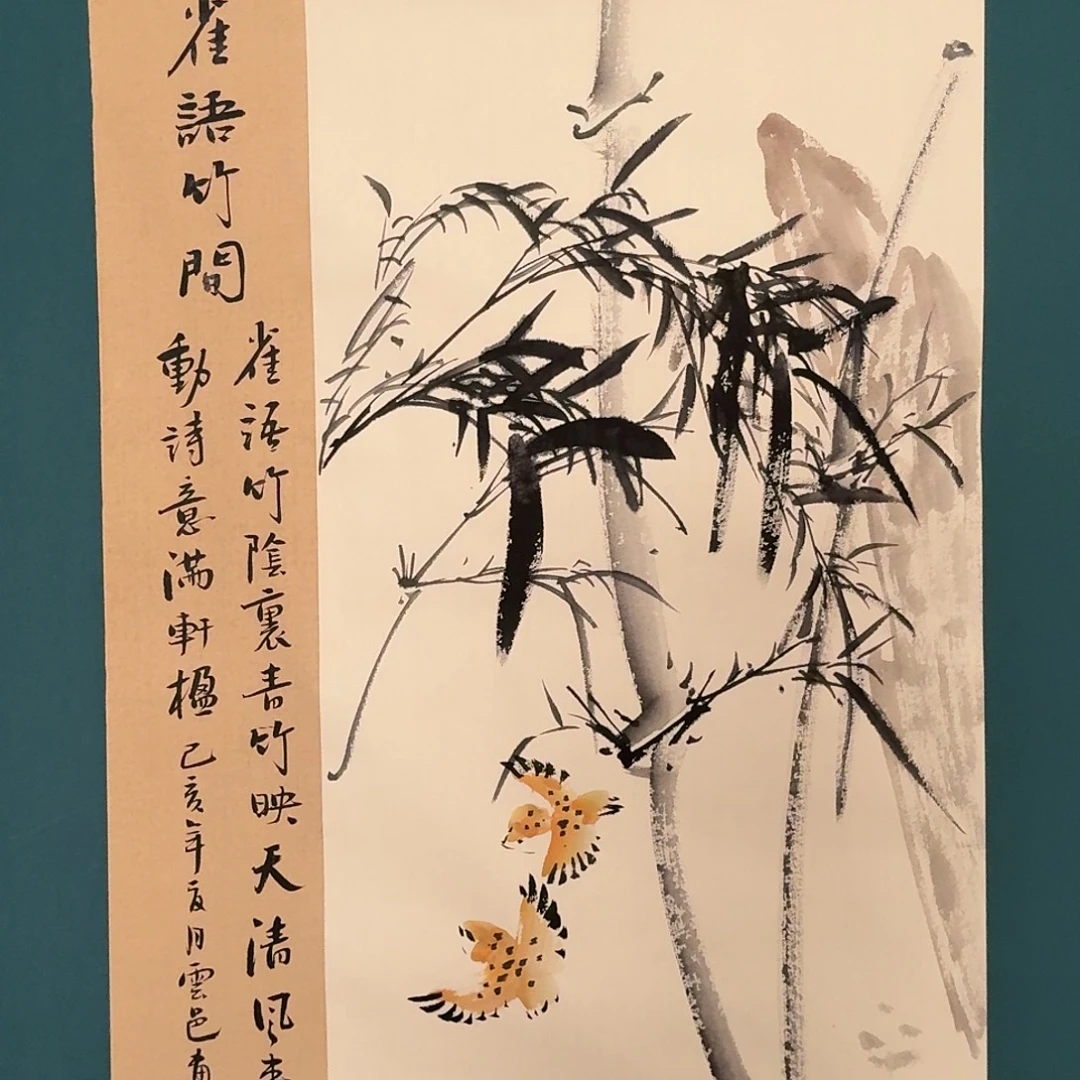 雀語竹間
雀語竹陰裏青竹映天清风
動詩意满軒楹
己亥年夏月雲邑